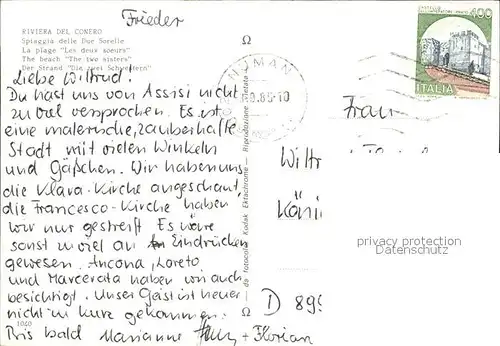 Frieder
RIVIERA DEL CONERO
Spiaggia delle Due Sorelle
La plage "Les deux soeurs"
The beach "The two sisters"
Der Strand "Die zwei Schwestern"
Liebe Wiltrud!
Du hast uns von Assisi nicht
zu viel versprochen. Es ist
eine malerische, zauberhafte
Stadt mit vielen Winkeln
und Gäßchen. Wir haben uns
die Klara-Kirche angeschaut,
die Francesco-Kirche haben
wir nur gestreift. Es wäre
sonst zu viel an Eindrücken
gewesen. Ancona, Loreto
und Marcerata haben wir auch
besichtigt. Unser Geist ist heuer
nicht zu kurz gekommen.
Bis bald Marianne
+ Florian
1040
NUMANA
da fotocolor Kodak Ektachrome - Riproduzione vietata
400
ITALIA
Frau
Wilt
Köni
D 895
privacy protection
Datenschutz